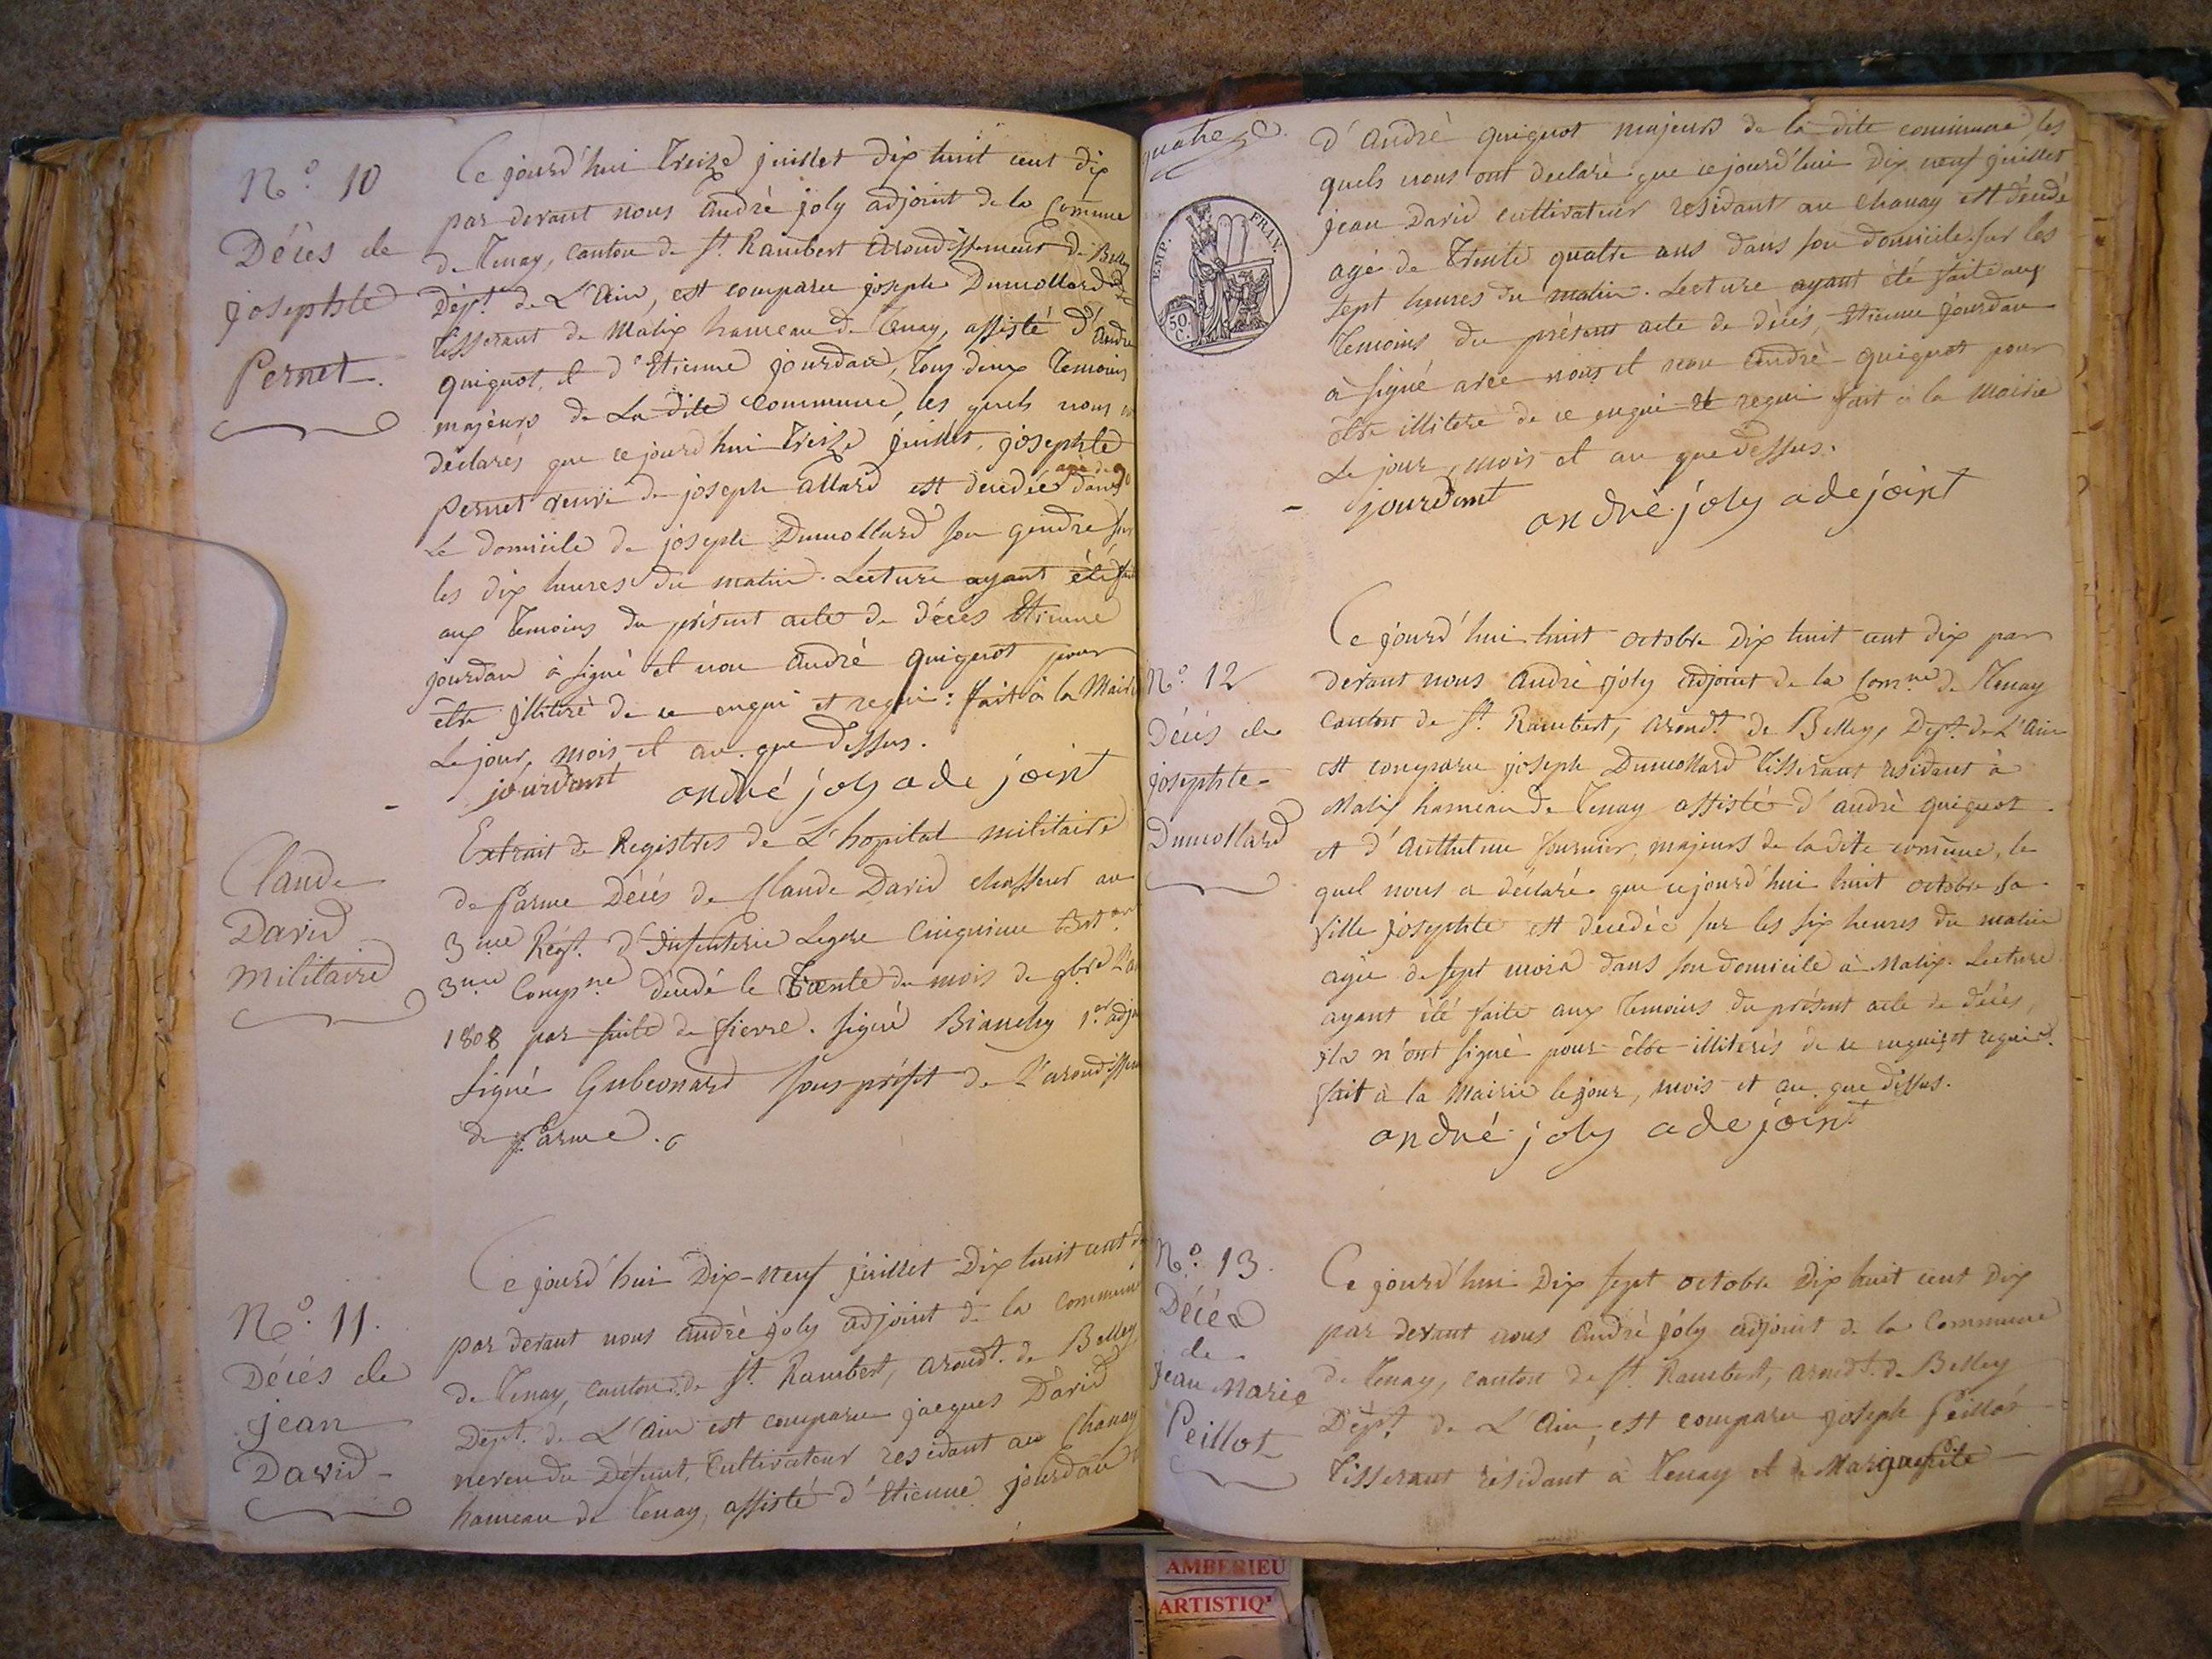 N.º 10
Décès de
josephte
Pernet.
Ce jourd'hui treize juillet dix huit cent dix
par devant nous andrè joly adjoint de la Commune
de tenay, canton de St. Rambert arondissement de Belley
Dépt. de L'Ain, est comparu joseph Dumollard
tisserant de Malix hameau de tenay, assisté d'andré
quignot, et d'Etienne jourdan, tous deux temoins
majeurs de La dite Commune, les quels nous
déclarés que ce jourd'hui treize juillet, josephte
agée de
Pernet veuve de joseph allard est decedée dans
Le domicile de joseph Dumollard son gendre sur
les dix heures du matin. Lecture ayant été
aux temoins du présent acte de décès Etienne
jourdan à signé et non andré quignot pour
être illiteré de ce enquis et requis: fait à la Mairie
Le jour, mois et an que dessus.
jourdant andré joly adejoint
Claude
David
militaire
Extrait de Registres de L'hopital militaire
de Parme Décés de Claude David chasseur au
3me Regt. d'infenterie Legere Cinquieme Bat.on
3me Comp.ne décédé le trente du mois de 9bre L'an
1808 par suite de fievre. signé Bianchy 1.er adjt
signé Gubeonard sous préfet de L'arondissement
de Parme.
N.º 11.
Décés de
jean
David
Ce jourd'hui Dix-neuf juillet Dix huit cent
par devant nous andrè joly adjoint de la commune
de tenay, canton de St. Rambert, arondt. de Belley
Dépt. de L'Ain est comparu jacques David
neveu du Defunt, Cultivateur residant au Chanay
hameau de tenay, assisté d'Etienne jourdan
quatre
EMP. FRANÇ.
50 C.
d'Andrè quignot majeurs de la dite commune, les
quels nous ont declaré que ce jourd'hui Dix neuf juillet
jean David cultivateur residant au Chanay est décedé
agé de trente quatre ans dans son domicile sur les
sept heures du matin. Lecture ayant été faite aux
temoins du présent acte de décès, Etienne jourdan
a signé avec nous et non andrè quignot pour
être illitere de ce enquis et requis fait à la Mairie
Le jour, mois et an que dessus.
jourdant andrè joly adejoint
N.º 12
Décés de
josephte
Dumollard
Ce jourd'hui huit octobre dix huit cent dix par
devant nous andrè joly adjoint de la Com.ne de tenay
Canton de St. Rambert, arondt. de Belley, Dept. de L'Ain
est comparu joseph Dumollard tisserant residant à
Malix hameau de tenay assisté d'andrè quignot
et d'Anthelme fournier, majeurs de la dite commune, le
quel nous a déclaré que ce jourd'hui huit octobre sa
fille josephte est decedée sur les six heures du matin
agée de sept mois dans son domicile à Malix. Lecture
ayant été faite aux temoins du présent acte de décés,
ils n'ont signé pour être illiterés de ce enquis et requis.
fait à la Mairie le jour, mois et an que dessus.
andrè joly adejoint
N.º 13.
Décés
de
jean Marie
Peillot
Ce jourd'hui Dix sept octobre dix huit cent dix
par devant nous andrè joly adjoint de la Commune
de tenay, canton de St. Rambert, arondt. de Belley
Dépt. de L'Ain, est comparu joseph Peillot
tisserant résidant à tenay et de Marguerite
AMBERIEU
ARTISTIQ'